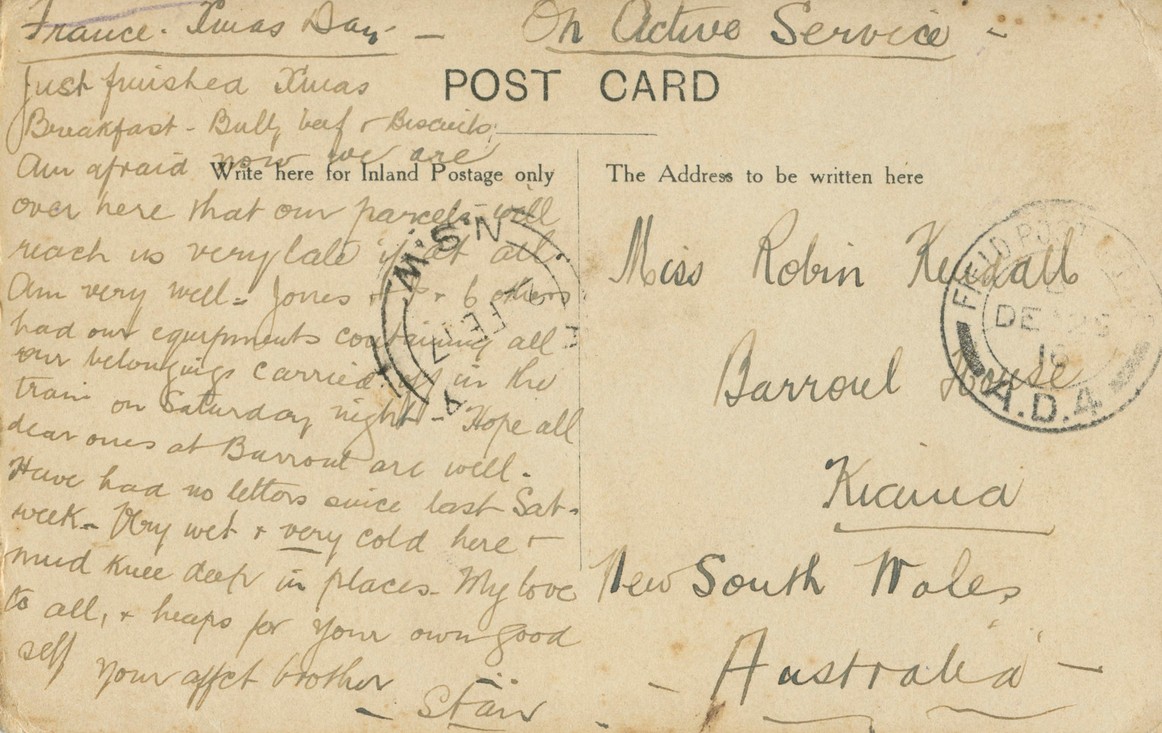 France. Xmas Day - On Active Service -
POST CARD
Just finished Xmas
Breakfast - Bully beef & Biscuits,
Am afraid now we are
Write here for Inland Postage only
over here that our parcels will
reach us very late if at all.
Am very well - Jones & I & 6 others
had our equipments containing all
our belongings carried off in the
train on Saturday night - Hope all
dear ones at Barroul are well -
Have had no letters since last Sat-
week - Very wet & very cold here &
mud knee deep in places - My love
to all, & heaps for your own good
self your affct brother
The Address to be written here
Miss Robin Kendall
Barroul House
Kiama
New South Wales
- Australia -
FIELD POST
DE 25
16
A.D.4
M.S.N
FE 17